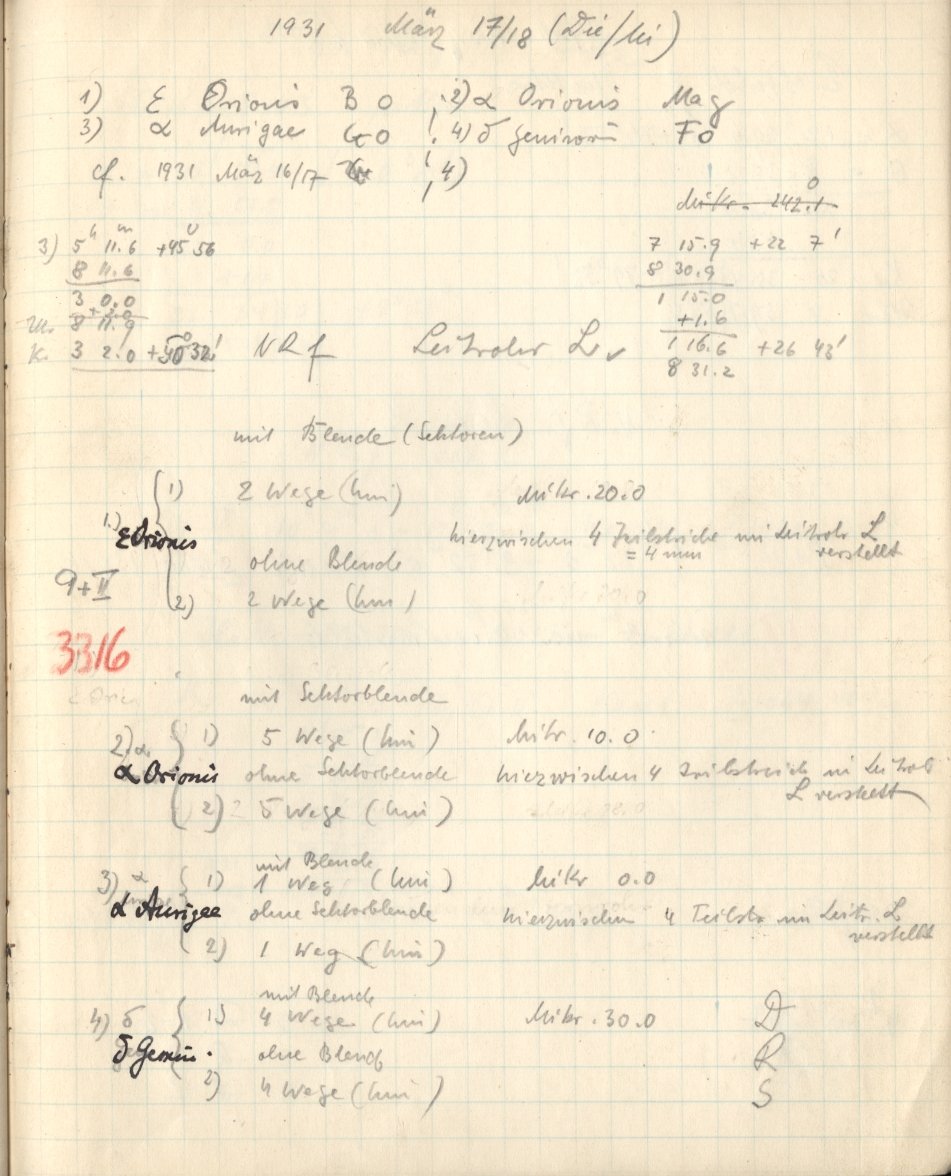 1931 März 17/18 (Die/Mi)
1) ε Orionis B0 ; 2) α Orionis Mag
3) α Aurigae G0 ; 4) δ Geminorum F0
cf. 1931 März 16/17 ; 4)
Mikr. 242.1
3) 5 h 11.6 m +45° 56 7 15.9 +22 7'
8 11.6 8 30.9
3 0.0 1 15.0
+2.0 +1.6
8 11.9
K. 3 2.0 +50° 32' NRf Leitrohr L 1 16.6 +26 43'
8 31.2
mit Blende (Sektoren)
1) 2 Wege (hin) Mikr. 20.0
1.) ε Orionis hierzwischen 4 Teilstriche im Leitrohr L verstellt
= 4 mm
ohne Blende
9+II 2) 2 Wege (hin)
3316
mit Sektorblende
2) α 1) 5 Wege (hin) Mikr. 10.0
α Orionis ohne Sektorblende hierzwischen 4 Teilstrich im Leitrohr
L verstellt
2) 5 Wege (hin)
mit Blende
3) α 1) 1 Weg (hin) Mikr 0.0
α Aurigae ohne Sektorblende hierzwischen 4 Teilstr im Leitr. L
verstellt
2) 1 Weg (hin)
mit Blende
4) δ 1) 4 Wege (hin) Mikr. 30.0 D
δ Gemin. ohne Blend R
2) 4 Wege (hin) S